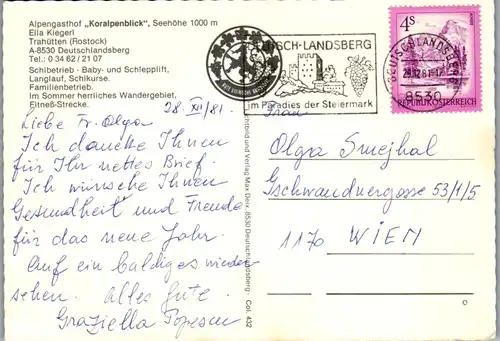 Alpengasthof „Koralpenblick", Seehöhe 1000 m
Ella Kiegerl
Trahütten (Rostock)
A-8530 Deutschlandsberg
Tel.: 0 34 62 / 21 07
Schibetrieb · Baby- und Schlepplift,
Langlauf, Schikurse.
Familienbetrieb.
Im Sommer herrliches Wandergebiet,
Fitneß-Strecke.
28. XII / 81.
Liebe Fr. Olga
Ich danette Ihnen
für Ihr nettes Brief.
Ich wünsche Ihnen
Gesundheit und Freude
für das neue Jahr.
Auf ein baldiges wieder
sehen. Alles Gute.
Graziella Popescu
TSCH-LANDSBERG
im Paradies der Steiermark
4S
REPUBLIK ÖSTERREICH
DEUTSCHLANDSBERG
29.12.81-17
8530
Verlag Max Deix, 8530 Deutschlandsberg - Col. 432
Frau
Olga Smejhal
Gschwandnergasse 53/1/5
1170 WIEN